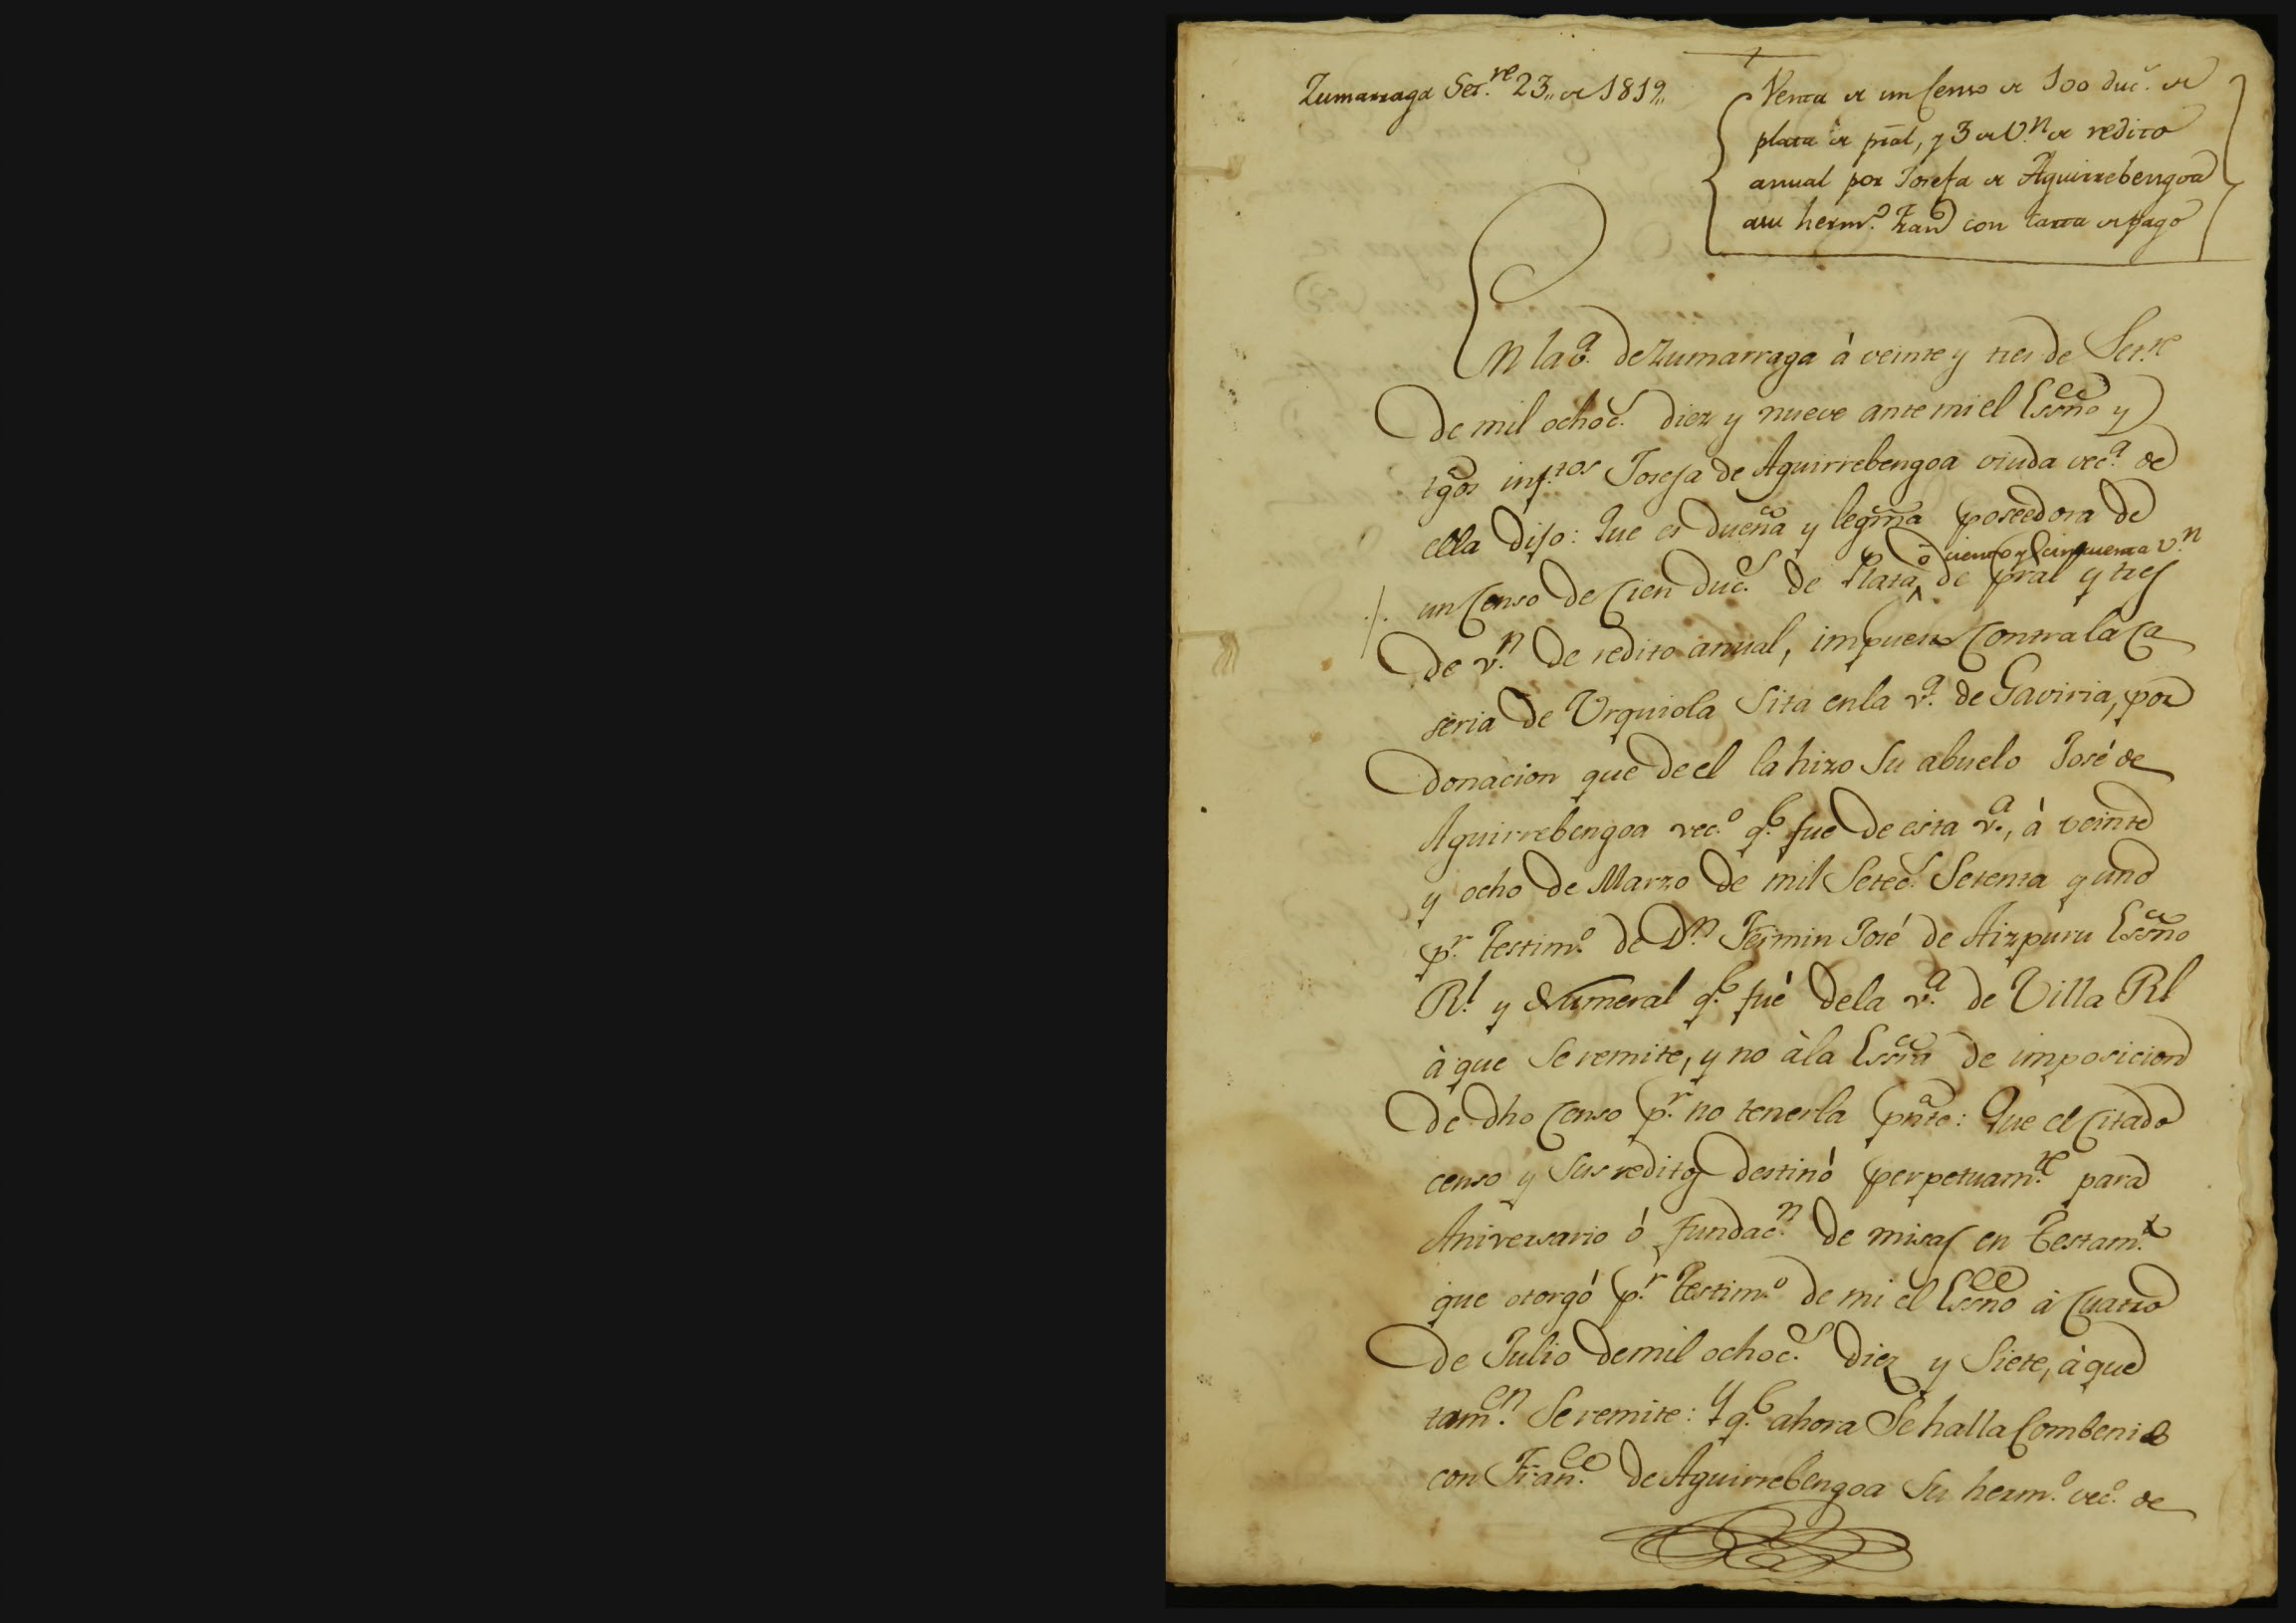 Zumarraga Set.re 23,, de 1819,,
Venta de un Censo de 100 duc.s de
plata de pral, y 3 de V.n de redito
anual por Josefa de Aguirrebengoa
a su herm.o Fran.co con carta de pago
En la v.a de Zumarraga à veinte y tres de Set.re
de mil ochoc.s diez y nueve ante mi el Essno y
tgos inf.tos Josefa de Aguirrebengoa viuda vec.a de
ella dijo: Que es dueña y legma poseedora de
ò ciento y cinquenta v.n
un Censo de Cien duc.s de Plata de pral y tres
de v.n de redito anual, impuesto Contra la Ca
seria de Urquiola Sita en la v.a de Gaviria, por
donacion que de el la hizo Su abuelo José de
Aguirrebengoa vec.o q.e fue de esta v.a, à veinte
y ocho de Marzo de mil Setec.s Setenta y uno
p.r Testim.o de D.n Fermin José de Aizpuru Essno
R.l y Numeral q.e fué dela v.a de Villa Rl
à que Se remite, y no à la Essra de imposicion
de dho Censo p.r no tenerla pnte: Que el Citado
censo y Sus reditos destinó perpetuam.te para
Aniversario ó fundac.n de misas en Testam.to
que otorgó p.r Testim.o de mi el Essno à Cuatro
de Julio de mil ochoc.s diez y Siete, à que
tam.en Se remite: Y q.e ahora Se halla Combenida
con Fran.co de Aguirrebengoa Su herm.o vec.o de